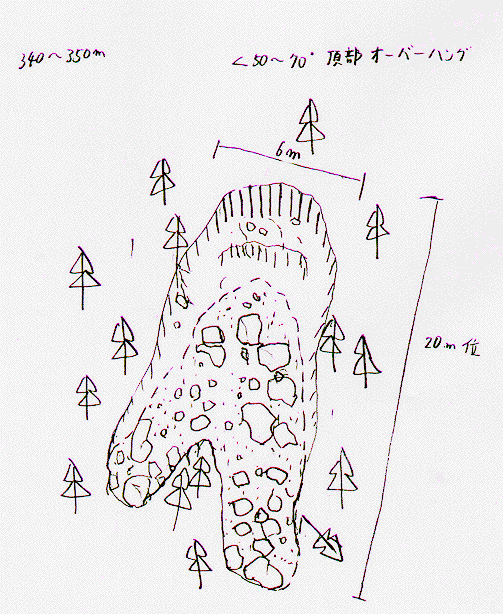 340〜350m
∠50〜70° 頂部 オーバーハング
6m
20m位